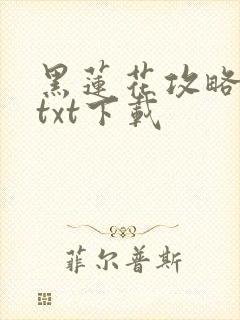 黑蓮花攻略
txt下載
菲尔普斯